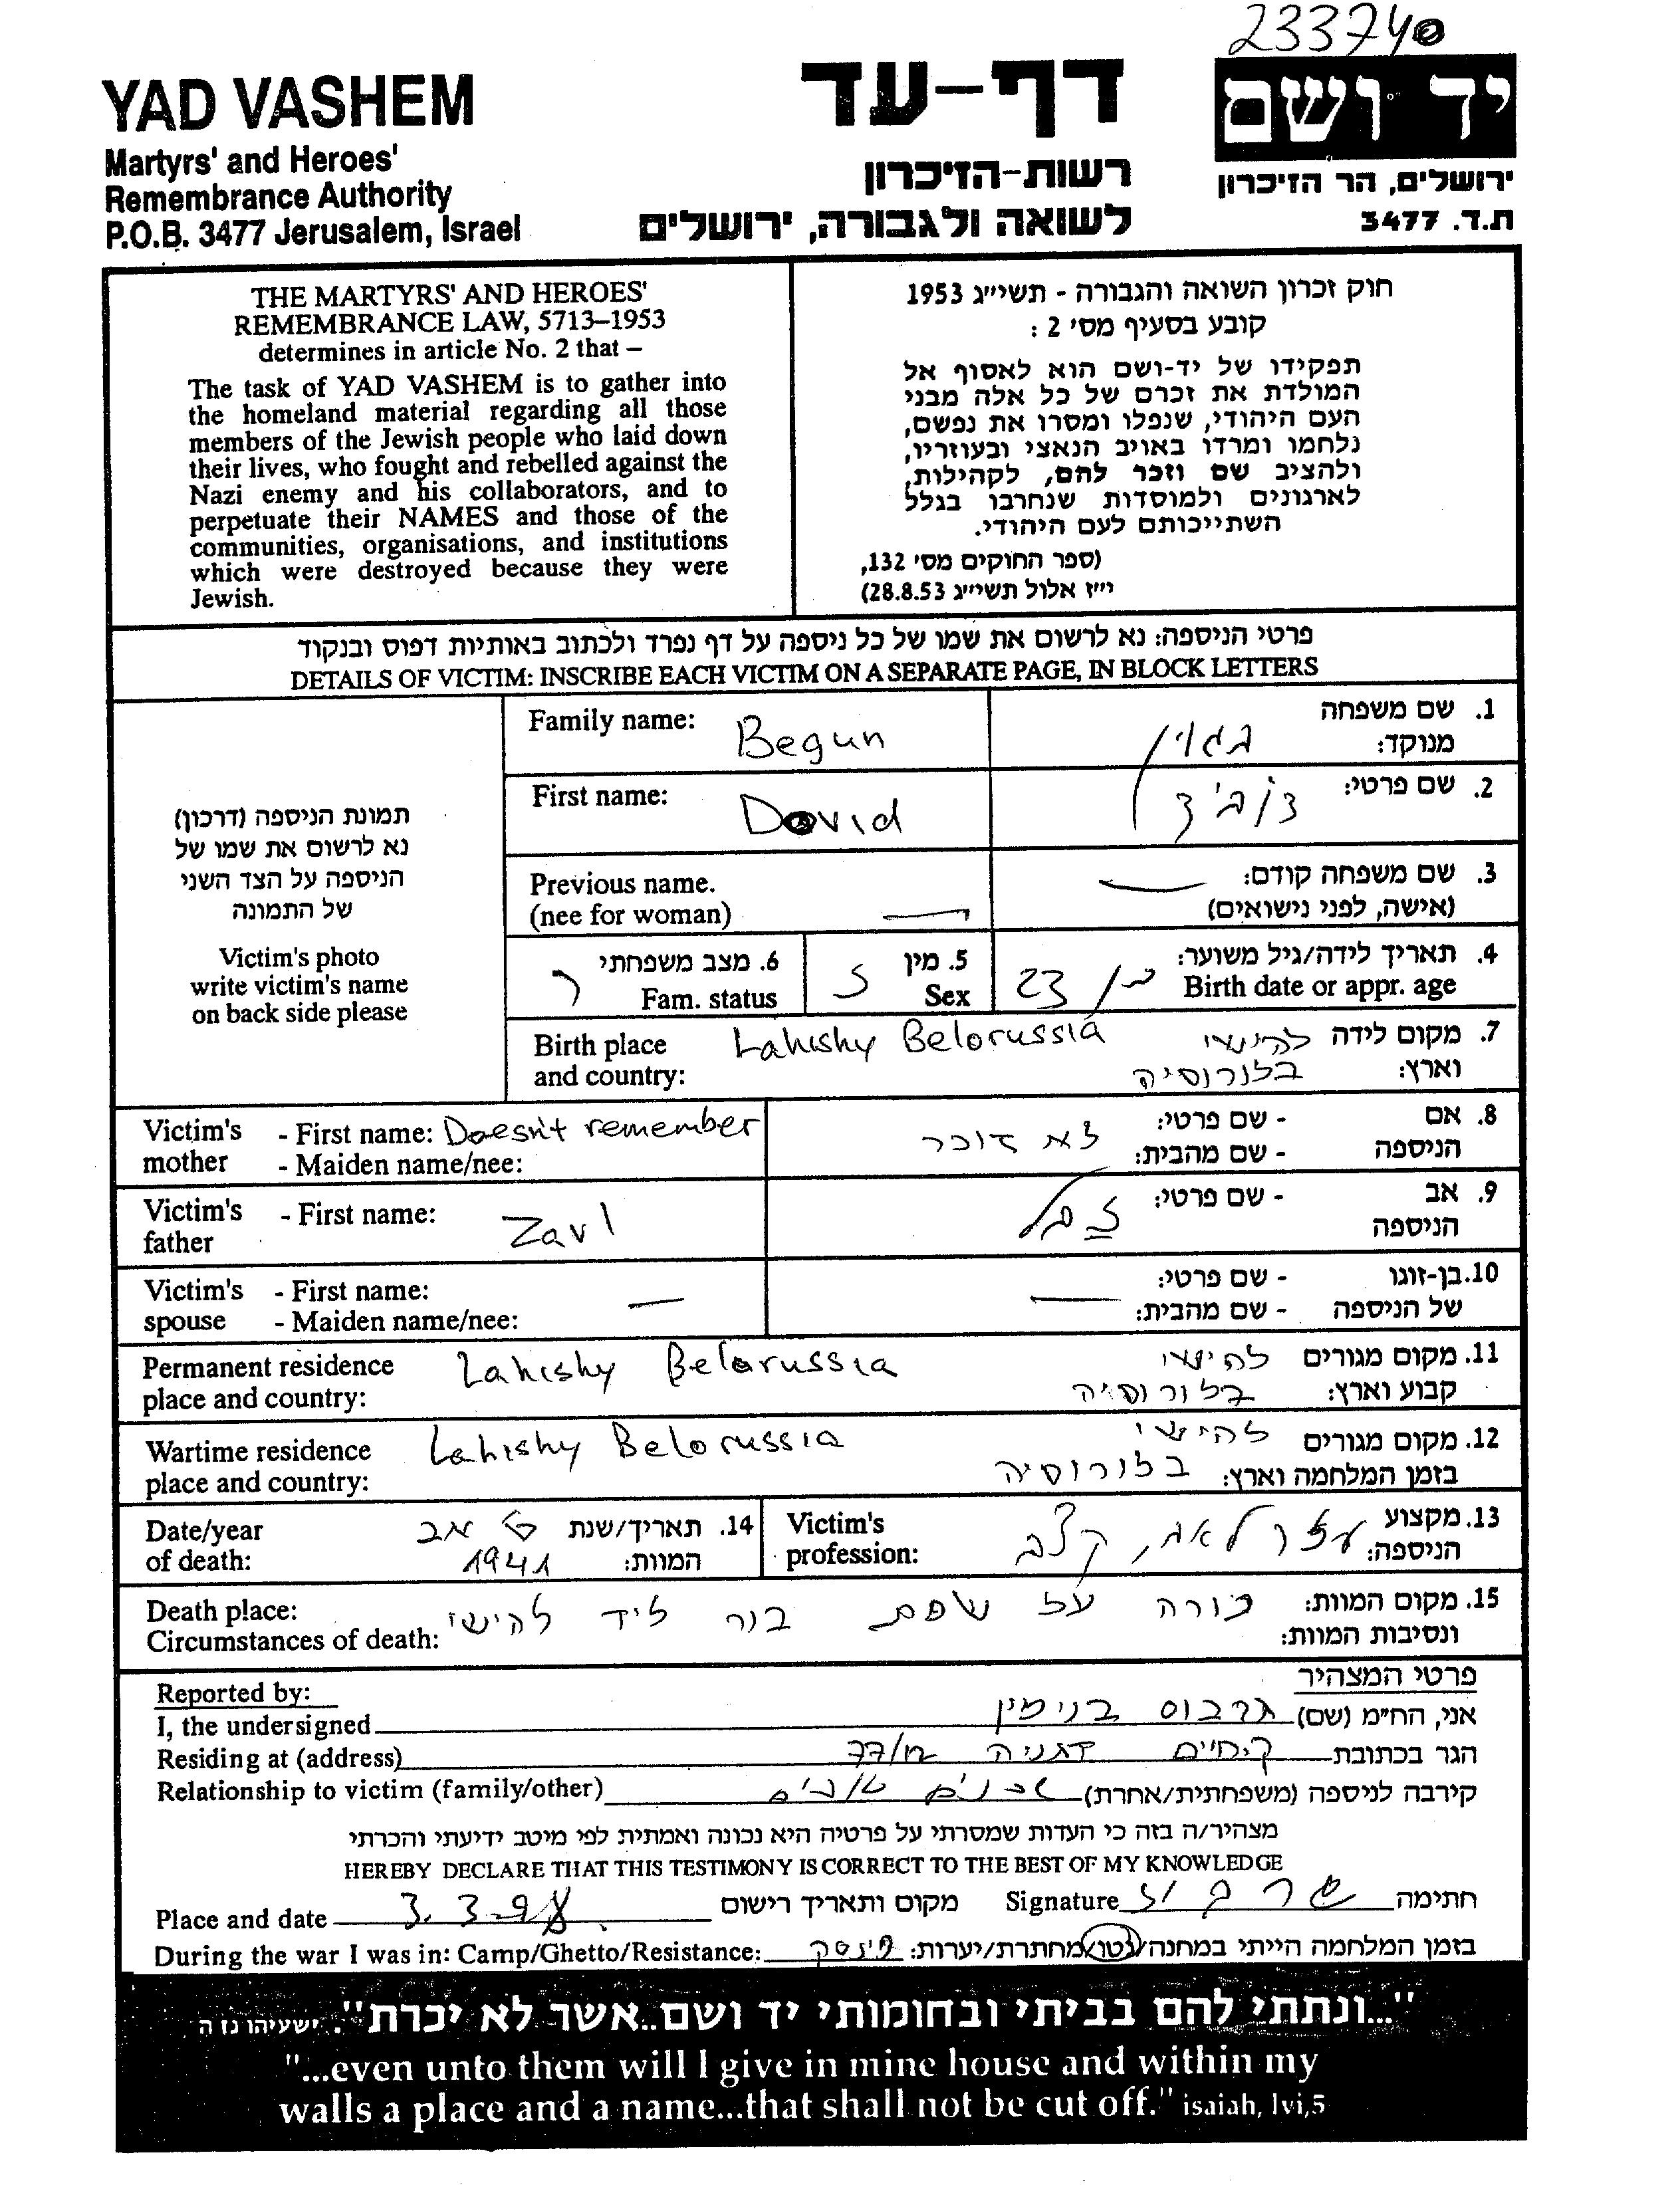 233740
YAD VASHEM
Martyrs' and Heroes'
Remembrance Authority
P.O.B. 3477 Jerusalem, Israel
דף-עד
רשות-הזיכרון
לשואה ולגבורה, ירושלים
יד ושם
ירושלים, הר הזיכרון
ת.ד. 3477
THE MARTYRS' AND HEROES'
REMEMBRANCE LAW, 5713–1953
determines in article No. 2 that –
The task of YAD VASHEM is to gather into
the homeland material regarding all those
members of the Jewish people who laid down
their lives, who fought and rebelled against the
Nazi enemy and his collaborators, and to
perpetuate their NAMES and those of the
communities, organisations, and institutions
which were destroyed because they were
Jewish.
חוק זכרון השואה והגבורה - תשי״ג 1953
קובע בסעיף מס׳ 2 :
תפקידו של יד-ושם הוא לאסוף אל
המולדת את זכרם של כל אלה מבני
העם היהודי, שנפלו ומסרו את נפשם,
נלחמו ומרדו באויב הנאצי ובעוזריו,
ולהציב שם וזכר להם, לקהילות,
לארגונים ולמוסדות שנחרבו בגלל
השתייכותם לעם היהודי.
(ספר החוקים מס׳ 132,
י״ז אלול תשי״ג 28.8.53)
פרטי הניספה: נא לרשום את שמו של כל ניספה על דף נפרד ולכתוב באותיות דפוס ובנקוד
DETAILS OF VICTIM: INSCRIBE EACH VICTIM ON A SEPARATE PAGE, IN BLOCK LETTERS
תמונת הניספה (דרכון)
נא לרשום את שמו של
הניספה על הצד השני
של התמונה
Victim's photo
write victim's name
on back side please
Family name: Begun
1. שם משפחה
מנוקד: בגון
First name: David
2. שם פרטי: דוביד
Previous name.
(nee for woman) —
3. שם משפחה קודם: —
(אישה, לפני נישואים)
4. תאריך לידה/גיל משוער:
Birth date or appr. age בן 23
5. מין
Sex ז
6. מצב משפחתי
Fam. status ר
Birth place Lahishy Belorussia
and country:
7. מקום לידה להישי
וארץ: בלורוסיה
Victim's - First name: Doesn't remember
mother - Maiden name/nee:
8. אם - שם פרטי: לא זוכר
הניספה - שם מהבית:
Victim's - First name: Zavl
father
9. אב - שם פרטי: זבל
הניספה
Victim's - First name:
spouse - Maiden name/nee: —
10. בן-זוגו - שם פרטי:
של הניספה - שם מהבית: —
Permanent residence Lahishy Belarussia
place and country:
11. מקום מגורים להישי
קבוע וארץ: בלורוסיה
Wartime residence Lahishy Belorussia
place and country:
12. מקום מגורים להישי
בזמן המלחמה וארץ: בלורוסיה
Date/year
of death:
14. תאריך/שנת ט׳ אב
המוות: 1941
Victim's
profession:
13. מקצוע
הניספה: עזר לאב, קצב
Death place:
Circumstances of death:
15. מקום המוות: נורה על שפת בור ליד להישי
ונסיבות המוות:
Reported by:
פרטי המצהיר
I, the undersigned
אני, הח״מ (שם) בנימין
Residing at (address)
הגר בכתובת 77/12
Relationship to victim (family/other)
קירבה לניספה (משפחתית/אחרת) שכנים טובים
מצהיר/ה בזה כי העדות שמסרתי על פרטיה היא נכונה ואמתית לפי מיטב ידיעתי והכרתי
HEREBY DECLARE THAT THIS TESTIMONY IS CORRECT TO THE BEST OF MY KNOWLEDGE
Place and date 3.3.98 מקום ותאריך רישום
Signature חתימה
During the war I was in: Camp/Ghetto/Resistance: פינסק בזמן המלחמה הייתי במחנה/גטו/מחתרת/יערות:
"...ונתתי להם בביתי ובחומותי יד ושם..אשר לא יכרת". ישעיהו נו ה
"...even unto them will I give in mine house and within my
walls a place and a name...that shall not be cut off." isaiah, lvi,5